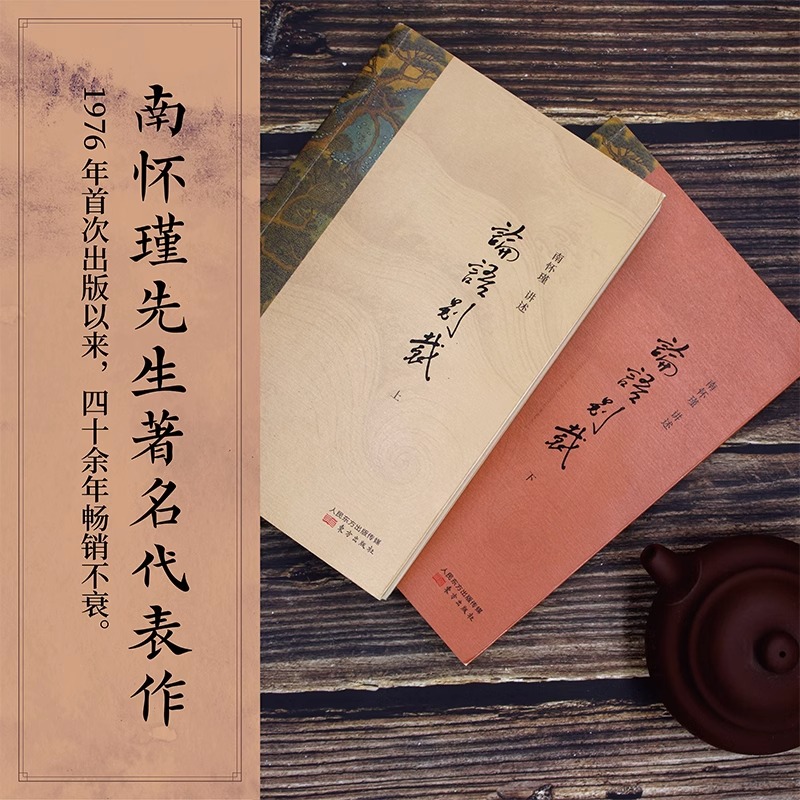 南怀瑾先生著名代表作
1976年首次出版以来，四十余年畅销不衰。
論語别裁
上
南怀瑾 讲述
人民东方出版传媒
東方出版社
論語别裁
下
南怀瑾 讲述
人民东方出版传媒
東方出版社